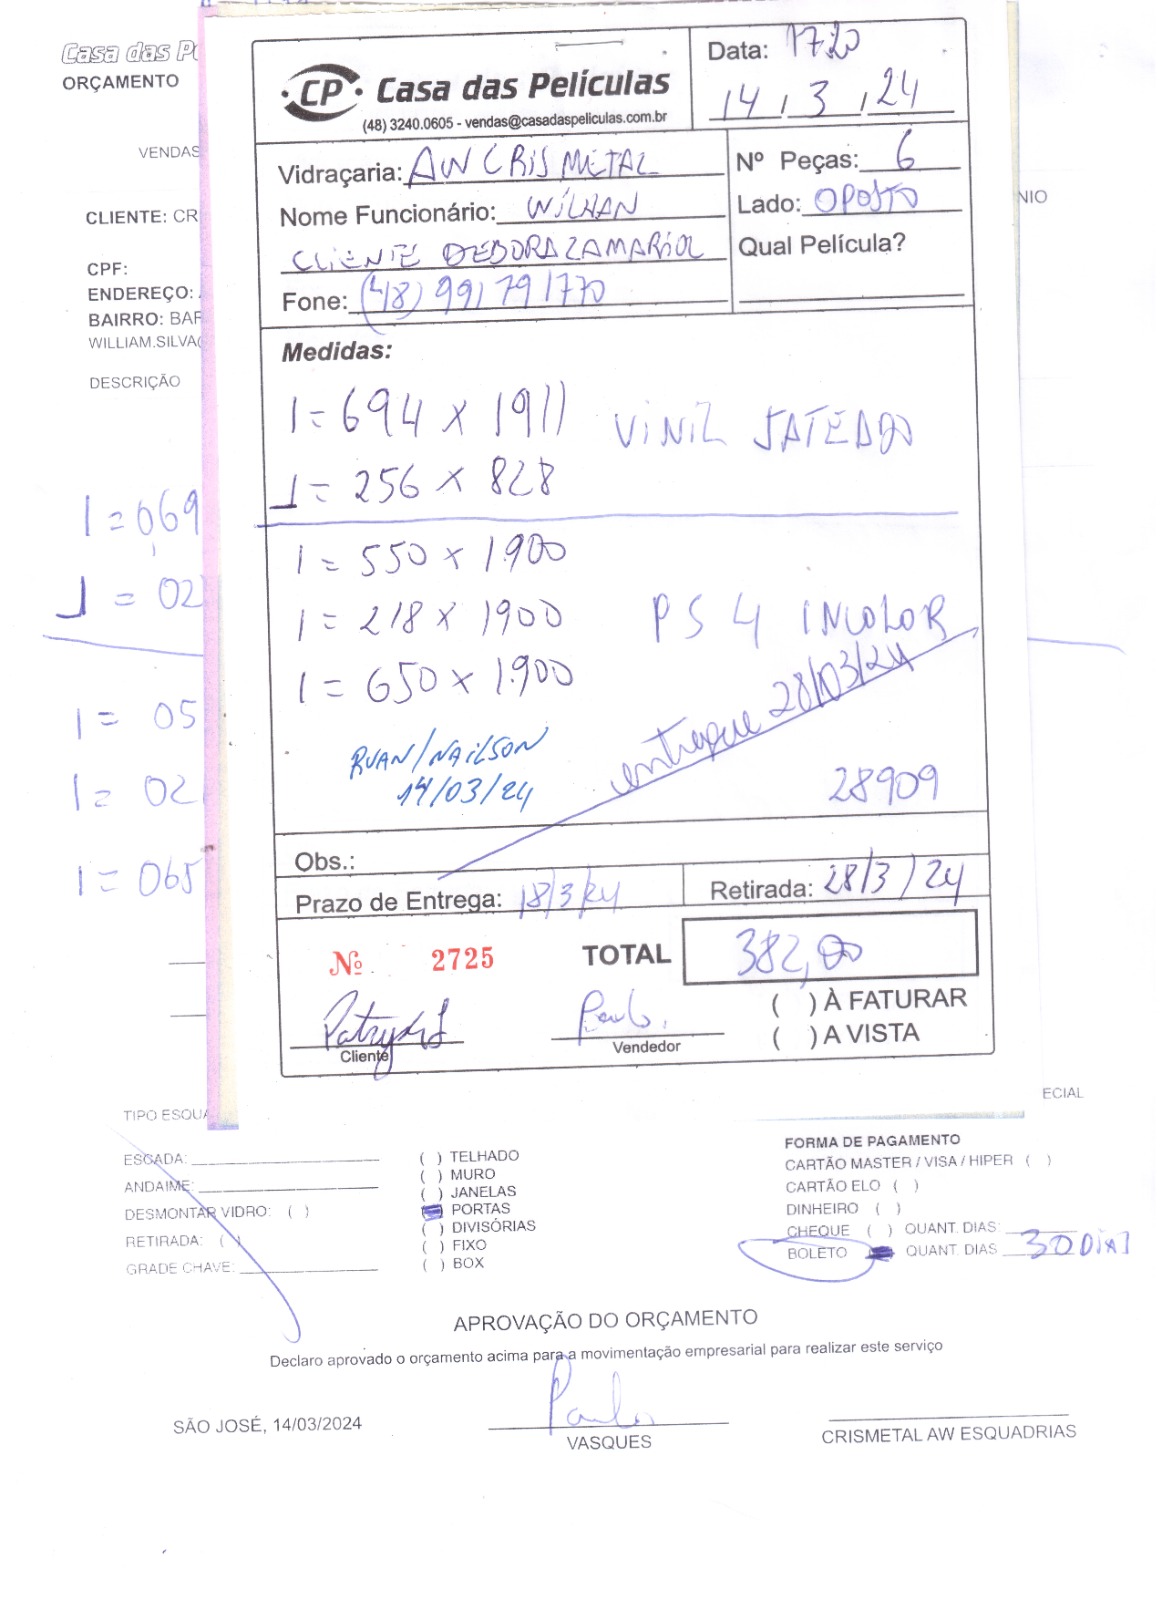 Casa das P
ORÇAMENTO
VENDAS
CLIENTE: CR
CPF:
ENDEREÇO:
BAIRRO: BAR
WILLIAM.SILVA
DESCRIÇÃO
NIO
1 = 069
1 = 02
1 = 05
1 = 02
1 = 065
CP Casa das Películas
(48) 3240.0605 - vendas@casadaspeliculas.com.br
Data: 17:20
14 / 3 / 24
Vidraçaria: AW CRIS METAL
Nome Funcionário: WILHAN
CLIENTE DEBORA ZAMARIOL
Fone: (48) 991791770
Nº Peças: 6
Lado: OPOSTO
Qual Película?
Medidas:
1 = 694 x 1911 VINIL JATEADO
1 = 256 x 828
1 = 550 x 1.900
1 = 218 x 1900 PS 4 INCOLOR
1 = 650 x 1.900
entregue 28/03/24
RUAN/NAILSON
14/03/24
28909
Obs.:
Prazo de Entrega: 18/3/24
Retirada: 28/3/24
Nº 2725
TOTAL 382,00
( ) À FATURAR
( ) A VISTA
Cliente
Paulo.
Vendedor
ECIAL
TIPO ESQUA
ESCADA:
ANDAIME:
DESMONTAR VIDRO: ( )
RETIRADA: ( )
GRADE CHAVE:
( ) TELHADO
( ) MURO
( ) JANELAS
PORTAS
( ) DIVISÓRIAS
( ) FIXO
( ) BOX
FORMA DE PAGAMENTO
CARTÃO MASTER / VISA / HIPER ( )
CARTÃO ELO ( )
DINHEIRO ( )
CHEQUE ( ) QUANT. DIAS:
BOLETO QUANT. DIAS 30 DIAS
APROVAÇÃO DO ORÇAMENTO
Declaro aprovado o orçamento acima para a movimentação empresarial para realizar este serviço
Paulo
SÃO JOSÉ, 14/03/2024
VASQUES
CRISMETAL AW ESQUADRIAS